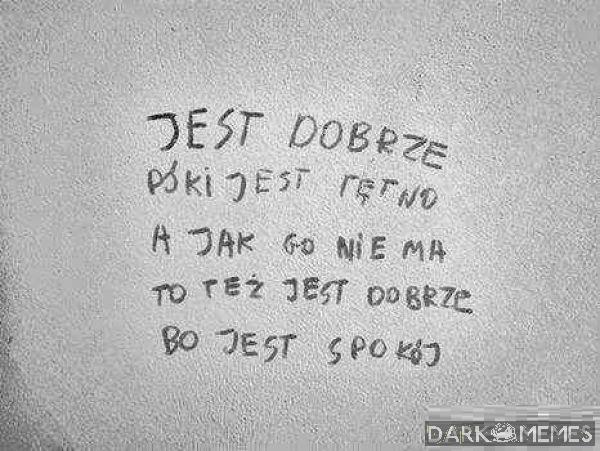 JEST DOBRZE
PÓKI JEST TĘTNO
A JAK GO NIE MA
TO TEŻ JEST DOBRZE
BO JEST SPOKÓJ
DARK MEMES